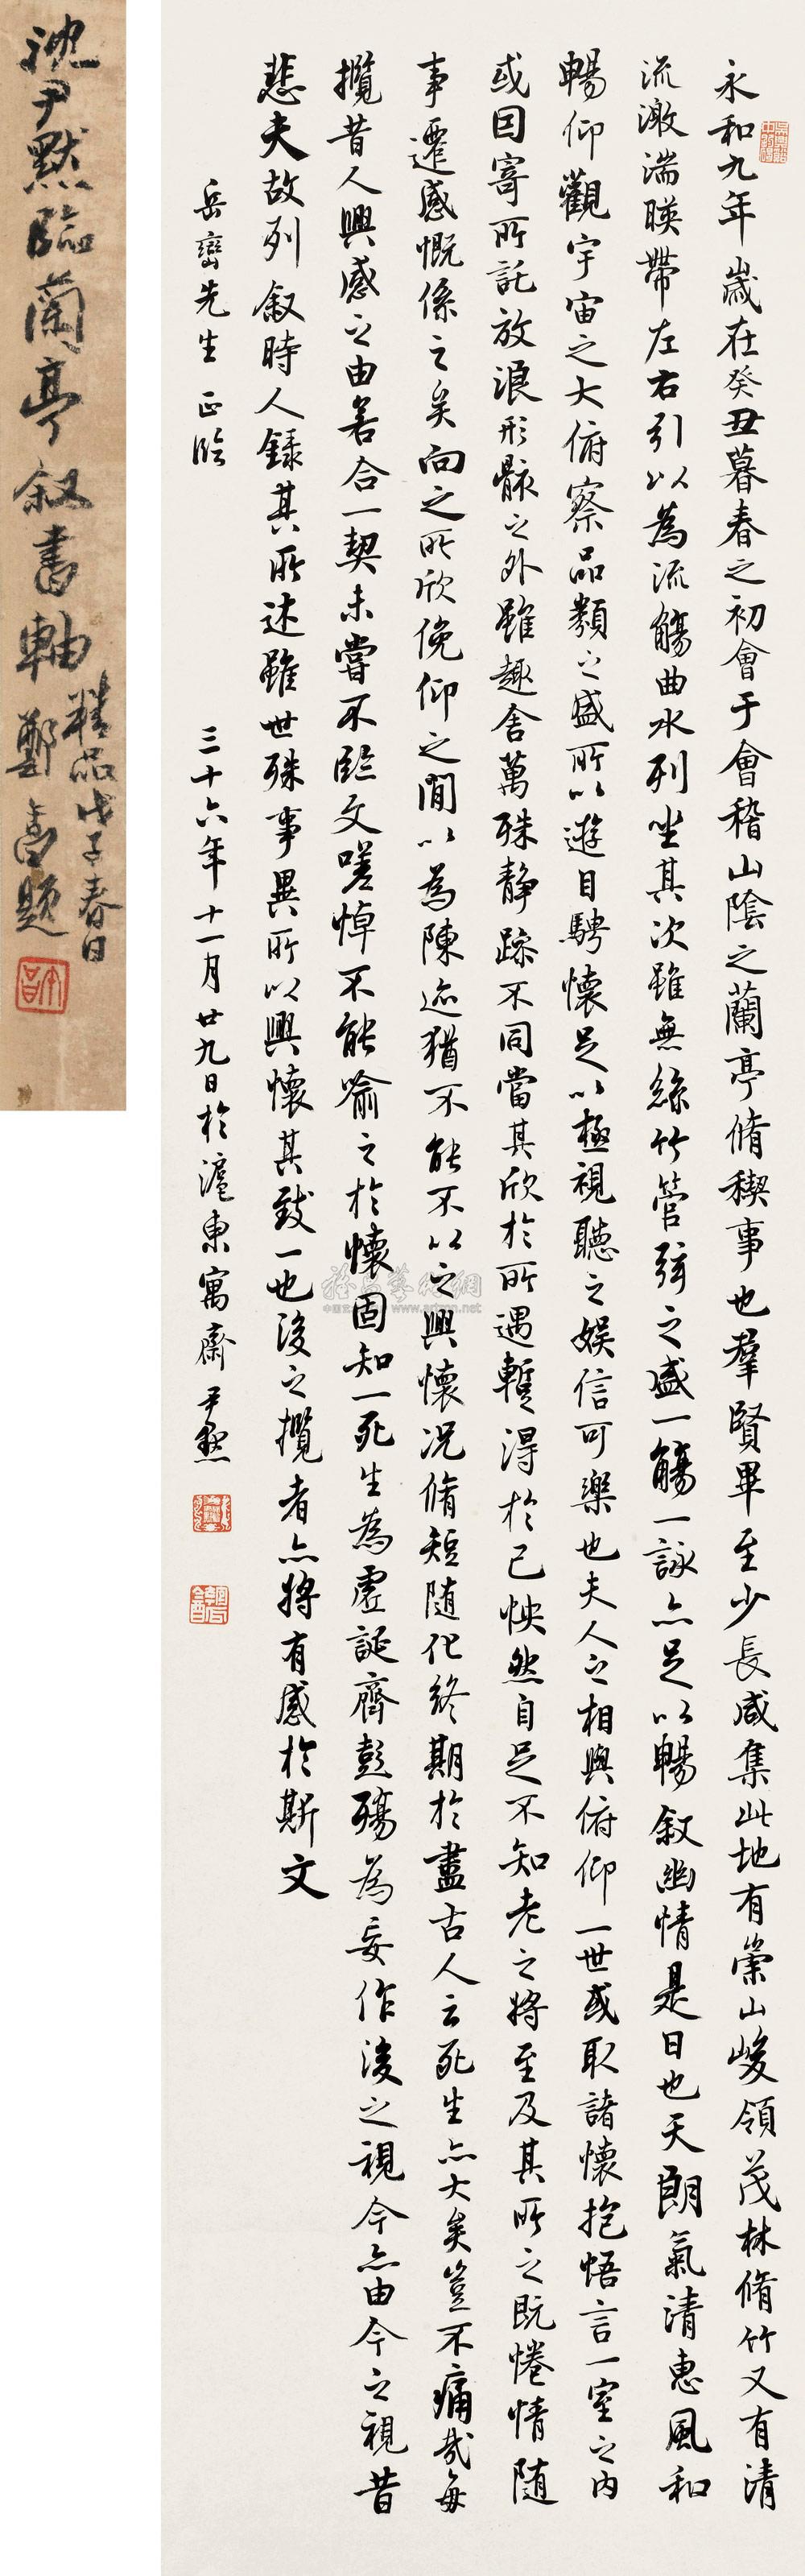 永和九年歲在癸丑暮春之初會于會稽山陰之蘭亭脩稧事也羣賢畢至少長咸集此地有崇山峻領茂林脩竹又有清
流激湍暎帶左右引以為流觴曲水列坐其次雖無絲竹管弦之盛一觴一詠亦足以暢叙幽情是日也天朗氣清惠風和
暢仰觀宇宙之大俯察品類之盛所以遊目騁懷足以極視聽之娛信可樂也夫人之相與俯仰一世或取諸懷抱悟言一室之內
或因寄所託放浪形骸之外雖趣舍萬殊静躁不同當其欣於所遇暫得於己怏然自足不知老之將至及其所之既惓情隨
事遷感慨係之矣向之所欣俛仰之閒以為陳迹猶不能不以之興懷況脩短隨化終期於盡古人云死生亦大矣豈不痛哉每
攬昔人興感之由若合一契未嘗不臨文嗟悼不能喻之於懷固知一死生為虛誕齊彭殤為妄作後之視今亦由今之視昔
悲夫故列叙時人錄其所述雖世殊事異所以興懷其致一也後之攬者亦將有感於斯文
岳巒先生正臨
三十六年十一月廿九日於滬東寓齋尹默
沈尹默臨蘭亭叙書軸
精品戊子春日
鄭喬題
www.artron.net